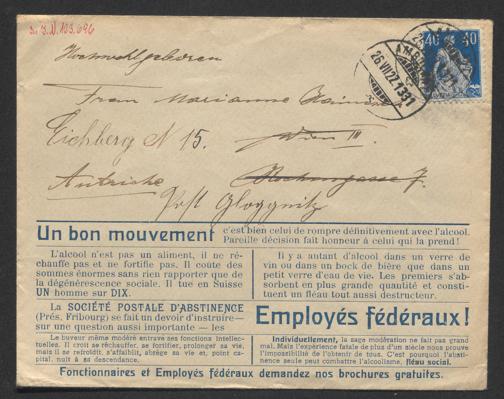 I.N. 103.696
Hochwohlgeboren
Frau Marianne Hainisch
Eichberg N 15. Wien III.
Autriche
Post Gloggnitz
40 40
26.VII.22.1331
Un bon mouvement c'est bien celui de rompre définitivement avec l'alcool.
Pareille décision fait honneur à celui qui la prend!
L'alcool n'est pas un aliment, il ne ré-
chauffe pas et ne fortifie pas. Il coûte des
sommes énormes sans rien rapporter que de
la dégénérescence sociale. Il tue en Suisse
UN homme sur DIX.
Il y a autant d'alcool dans un verre de
vin ou dans un bock de bière que dans un
petit verre d'eau de vie. Les premiers s'ab-
sorbent en plus grande quantité et consti-
tuent un fléau tout aussi destructeur.
La SOCIÉTÉ POSTALE D'ABSTINENCE
(Prés. Fribourg) se fait un devoir d'instruire—
sur une question aussi importante — les
Employés fédéraux!
Le buveur même modéré entrave ses fonctions intellec-
tuelles. Il croit se réchauffer, se fortifier, prolonger sa vie,
mais il se refroidit, s'affaiblit, abrège sa vie et, point capi-
tal, nuit à sa descendance.
Individuellement, la sage modération ne fait pas grand
mal. Mais l'expérience fatale de plus d'un siècle nous prouve
l'impossibilité de l'obtenir de tous. C'est pourquoi l'absti-
nence seule peut combattre l'alcoolisme, fléau social.
Fonctionnaires et Employés fédéraux demandez nos brochures gratuites.